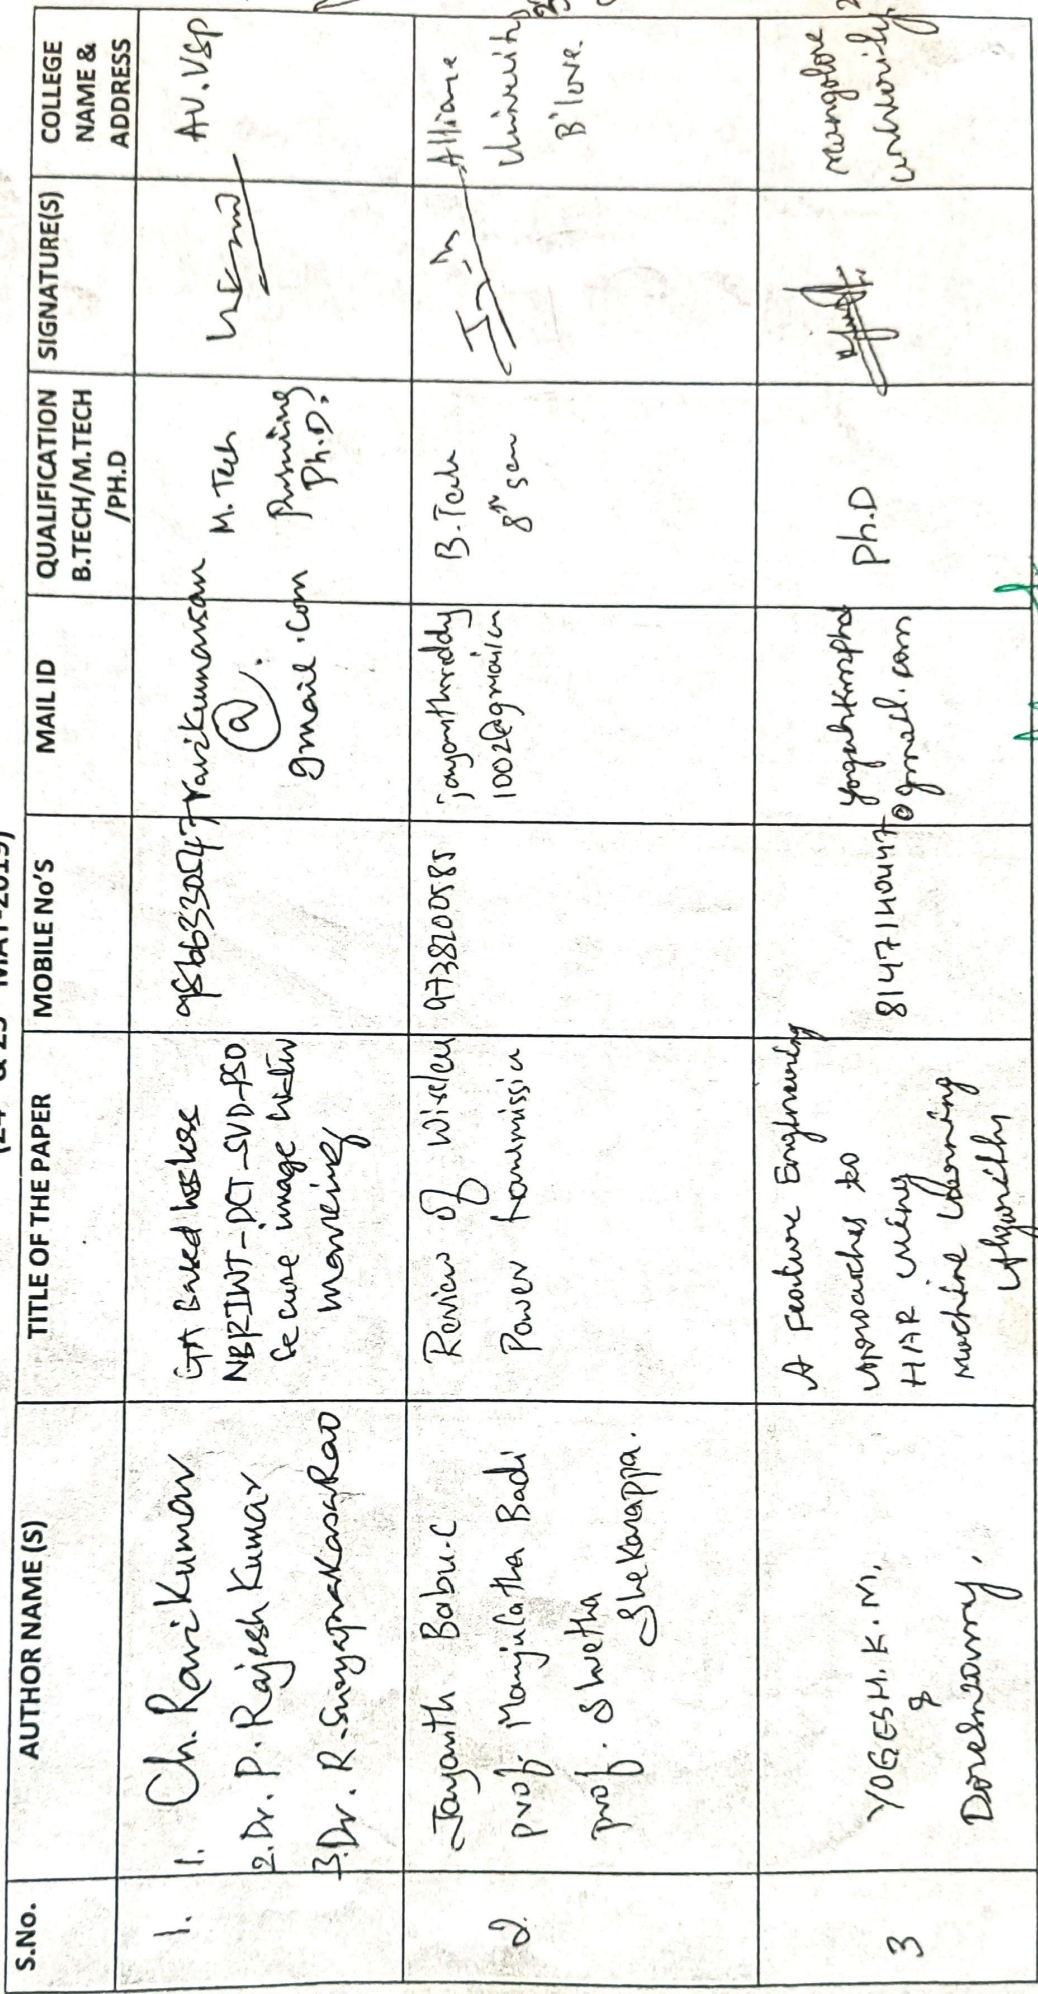 MAY-2019)
S.No.
AUTHOR NAME (S)
TITLE OF THE PAPER
MOBILE No'S
MAIL ID
QUALIFICATION
B.TECH/M.TECH
/PH.D
SIGNATURE(S)
COLLEGE
NAME &
ADDRESS
1.
1. Ch. Ravi Kumar
2. Dr. P. Rajesh Kumar
3. Dr. R. Suryaprakasa Rao
GA Based
NBRIWT-DCT-SVD-PSO
Secure image
M.Tech
Pursuing
Ph.D.
@
gmail.com
AU.VSP
2.
Jayanth Babu.C
prof. Manjulatha Badi
prof. Shwetha
Shekarappa.
Review of Wireless
Power transmission
9738200585
jayanthreddy
1002@gmail.com
B.Tech
8th sem
Alliance
University
B'lore.
3
YOGESH.K.M,
&
A Feature Engineering
approaches to
HAR using
machine learning
Algorithm
@gmail.com
Ph.D
mangalore
university